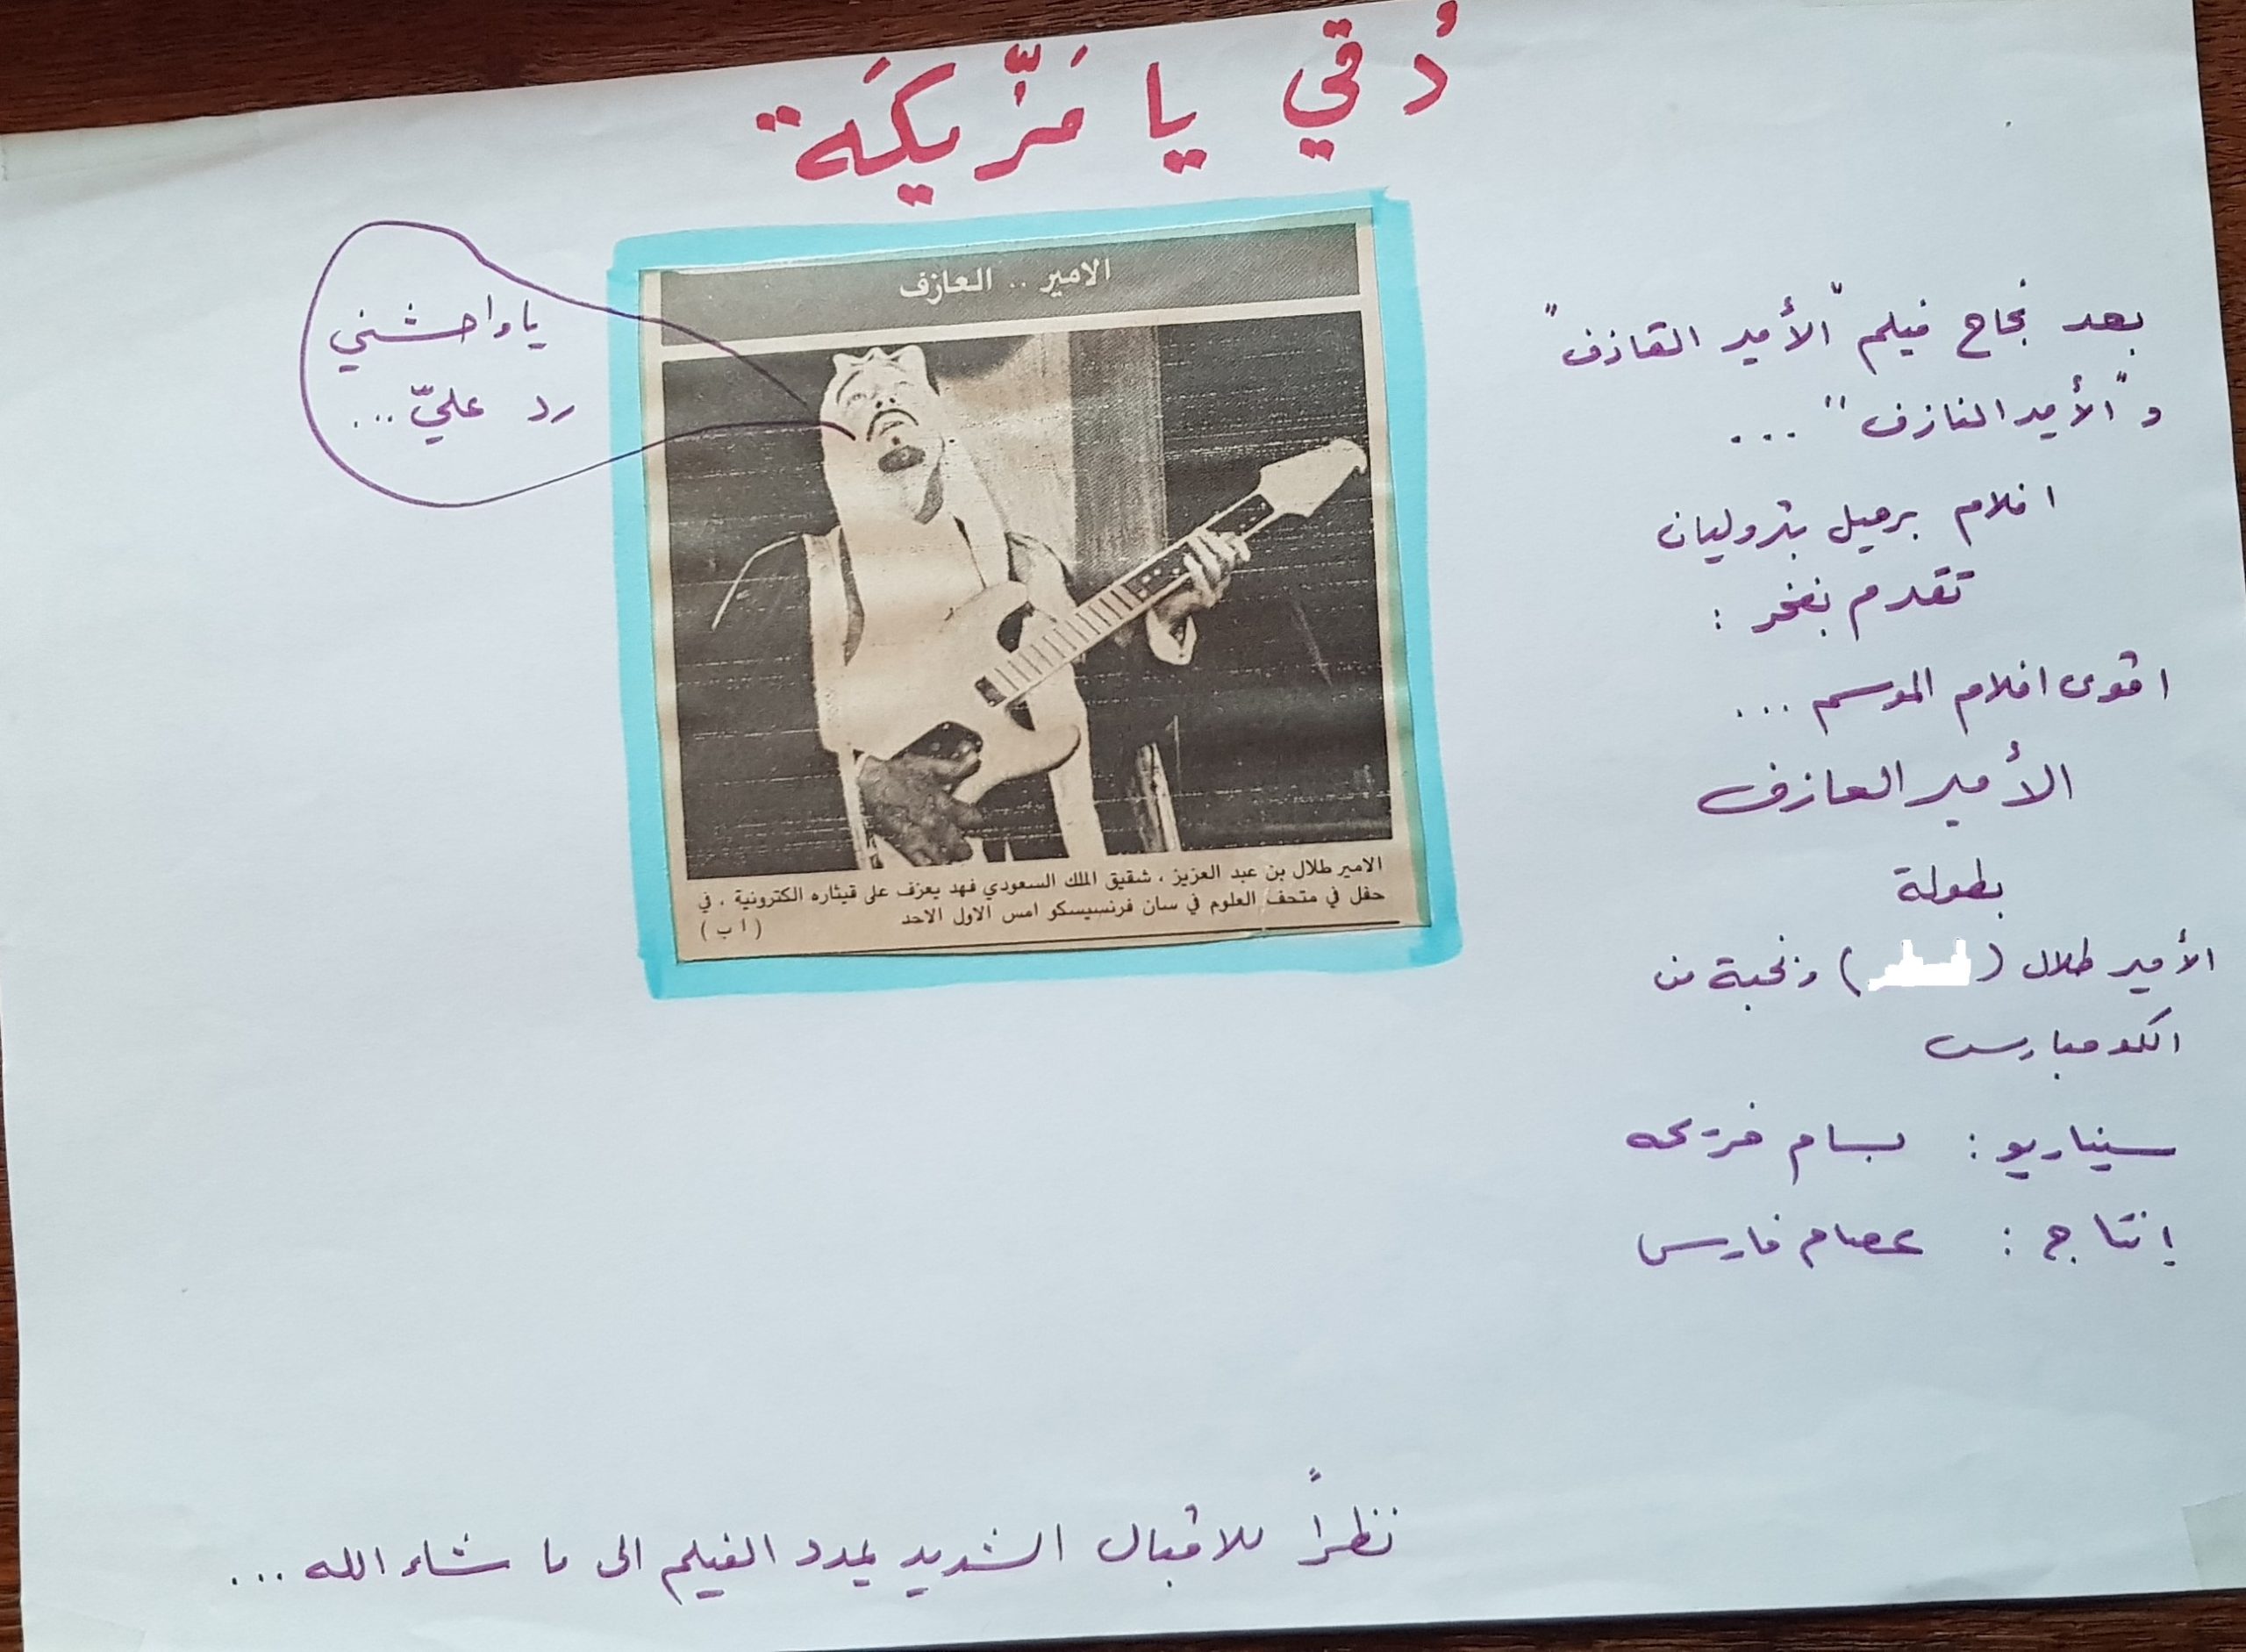 دُقي يا مَزِّيكَة
يا واحشني
رد عليّ...
الامير .. العازف
الامير طلال بن عبد العزيز ، شقيق الملك السعودي فهد يعزف على قيثاره الكترونية ، في
حفل في متحف العلوم في سان فرنسيسكو امس الاول الاحد
( ا ب )
بعد نجاح فيلم "الأمير القاذف"
و "الأمير النازف" ...
افلام برميل بتروليان
تقدم بفخر :
اقوى افلام الموسم ...
الأمير العازف
بطولة
الأمير طلال ( ) ونخبة من
الكومبارس
سيناريو : بسام
إنتاج : عصام فارس
نظراً للاقبال الشديد يمدد الفيلم الى ما شاء الله ...